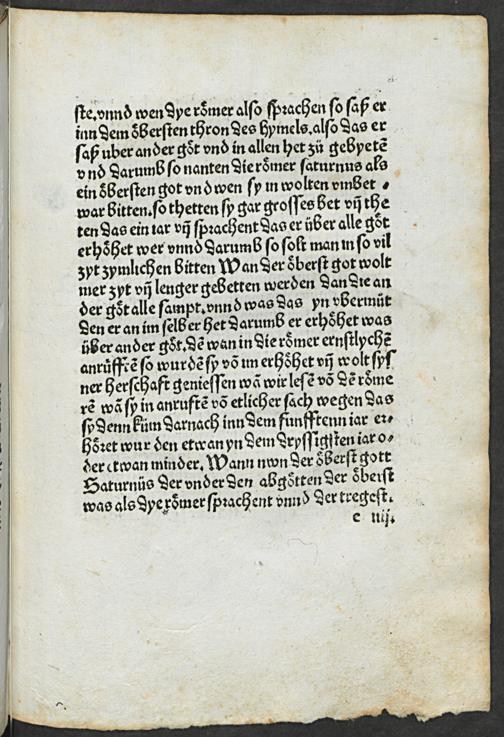 ste.vnnd wen dye römer also sprachen so saß er
inn dem öbersten thron des hymels.also das er
saß uber ander göt vnd in allen het zü gebyetē
vnd darumb so nanten die römer saturnus als
ein öbersten got vnd wen sy in wolten vmbet
war bitten.so thetten sy gar grosses bet vn̄ the
ten das ein iar vn̄ sprachent das er über alle göt
erhöhet wer vnnd darumb so solt man in so vil
zyt zymlichen bitten Wan der öberst got wolt
mer zyt vn̄ lenger gebetten werden dan die an
der göt alle sampt.vnnd was das yn vbermüt
den er an im selber het darumb er erhöhet was
über ander göt.dē wan in die römer ernstlychē
anrüffēē so wurdē sy vō im erhöhet vn̄ wolt sys
ner herschaft geniessen wā wir lesē vō dē röme
rē wā sy in anruftē vō etlicher sach wegen das
sy denn küm darnach inn dem funfftenn iar er⸗
höret wurden etwan yn dem dryssigisten iar o⸗
der etwan minder. Wann nwn der öberst gott
Saturnüs der vnder den abgötten der öberst
was als dye römer sprachent vnnd der tregest.
e iiij.